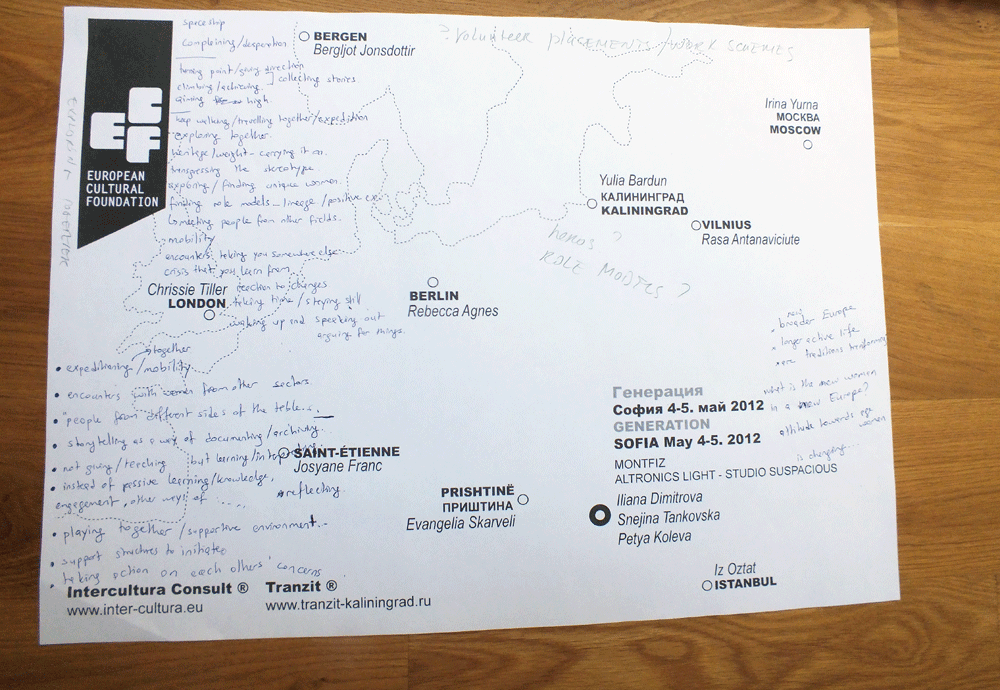 spaceship
complaining/desperation
turning point/giving direction
climbing/achieving
collecting stories
aiming high
keep walking/travelling together/expedition
exploring together
heritage/weight - carrying it on.
transgressing the stereotype
exploring/finding unique women
finding role models - lineage/positive
meeting people from other fields.
mobility
encounters taking you somewhere else
crisis that you learn from
reaction to changes
taking time/staying still
waking up and speaking out
arguing for things.
ECF
EUROPEAN
CULTURAL
FOUNDATION
BERGEN
Bergljot Jonsdottir
? VOLUNTEER PLACEMENTS/WORK SCHEMES
Irina Yurna
МОСКВА
MOSCOW
Yulia Bardun
КАЛИНИНГРАД
KALININGRAD
VILNIUS
Rasa Antanaviciute
heros ?
ROLE MODELS ?
Chrissie Tiller
LONDON
BERLIN
Rebecca Agnes
together
• expeditioning/mobility
• encounters with women from other sectors.
• "people from different sides of the tables"
• storytelling as a way of documenting/archiving...
• not giving/teaching but learning/
• instead of passive learning/knowledge,
reflecting.
engagement, other ways of ....
• playing together/supportive environment...
• support structures to initiate
• taking action on each others' concerns
new
• broader Europe
• longer active life
• traditions transforming
what is the new women
in a new Europe?
attitude towards age
women
is changing...
SAINT-ÉTIENNE
Josyane Franc
PRISHTINË
ПРИШТИНА
Evangelia Skarveli
Генерация
София 4-5. май 2012
GENERATION
SOFIA May 4-5. 2012
MONTFIZ
ALTRONICS LIGHT - STUDIO SUSPACIOUS
Iliana Dimitrova
Snejina Tankovska
Petya Koleva
Iz Oztat
ISTANBUL
Intercultura Consult ® Tranzit ®
www.inter-cultura.eu www.tranzit-kaliningrad.ru